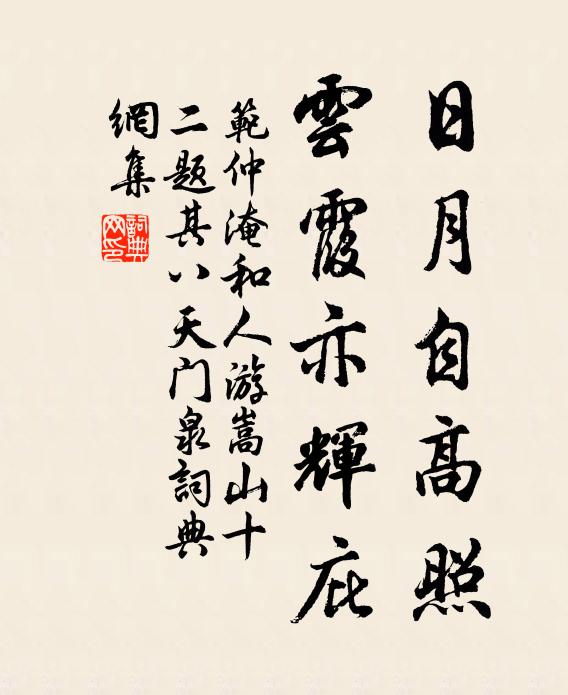 日月自高照
雲霞亦輝庇
範仲淹和人游嵩山十
二题其八天门泉詞典
網集
詞典
网印